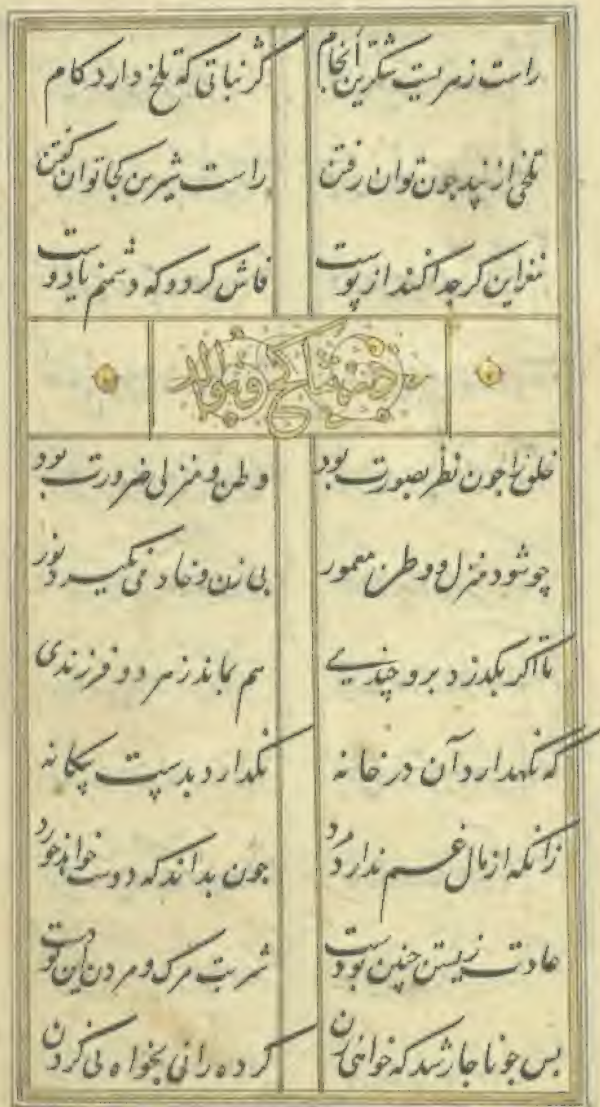 راست زهریست شکرین انجام گژ نباتی که تلخ دارد کام
تلخی از پند چون توان رفتن راست شیرین کجا توان گفتن
مغز این گر جدا کنند از پوست فاش گردد که دشمنم یا دوست
خلق را چون نظر بصورت بود وطن و منزلی ضرورت بود
چو شود منزل و وطن معمور بی زن و خادمی نگیرد نور
تا اگر بگذرد برو چندی هم بماند ز هر دو فرزندی
که نگهدارد آن در خانه نگذارد بدست بیگانه
زانکه از مال غم ندارد مرد چون بداند که دوست خواهد خورد
عادت زیستن چنین بودست شربت مرگ و مردن این
پس چو ناچار شد که خواهی زن کرده رانی بخواه نی کردن